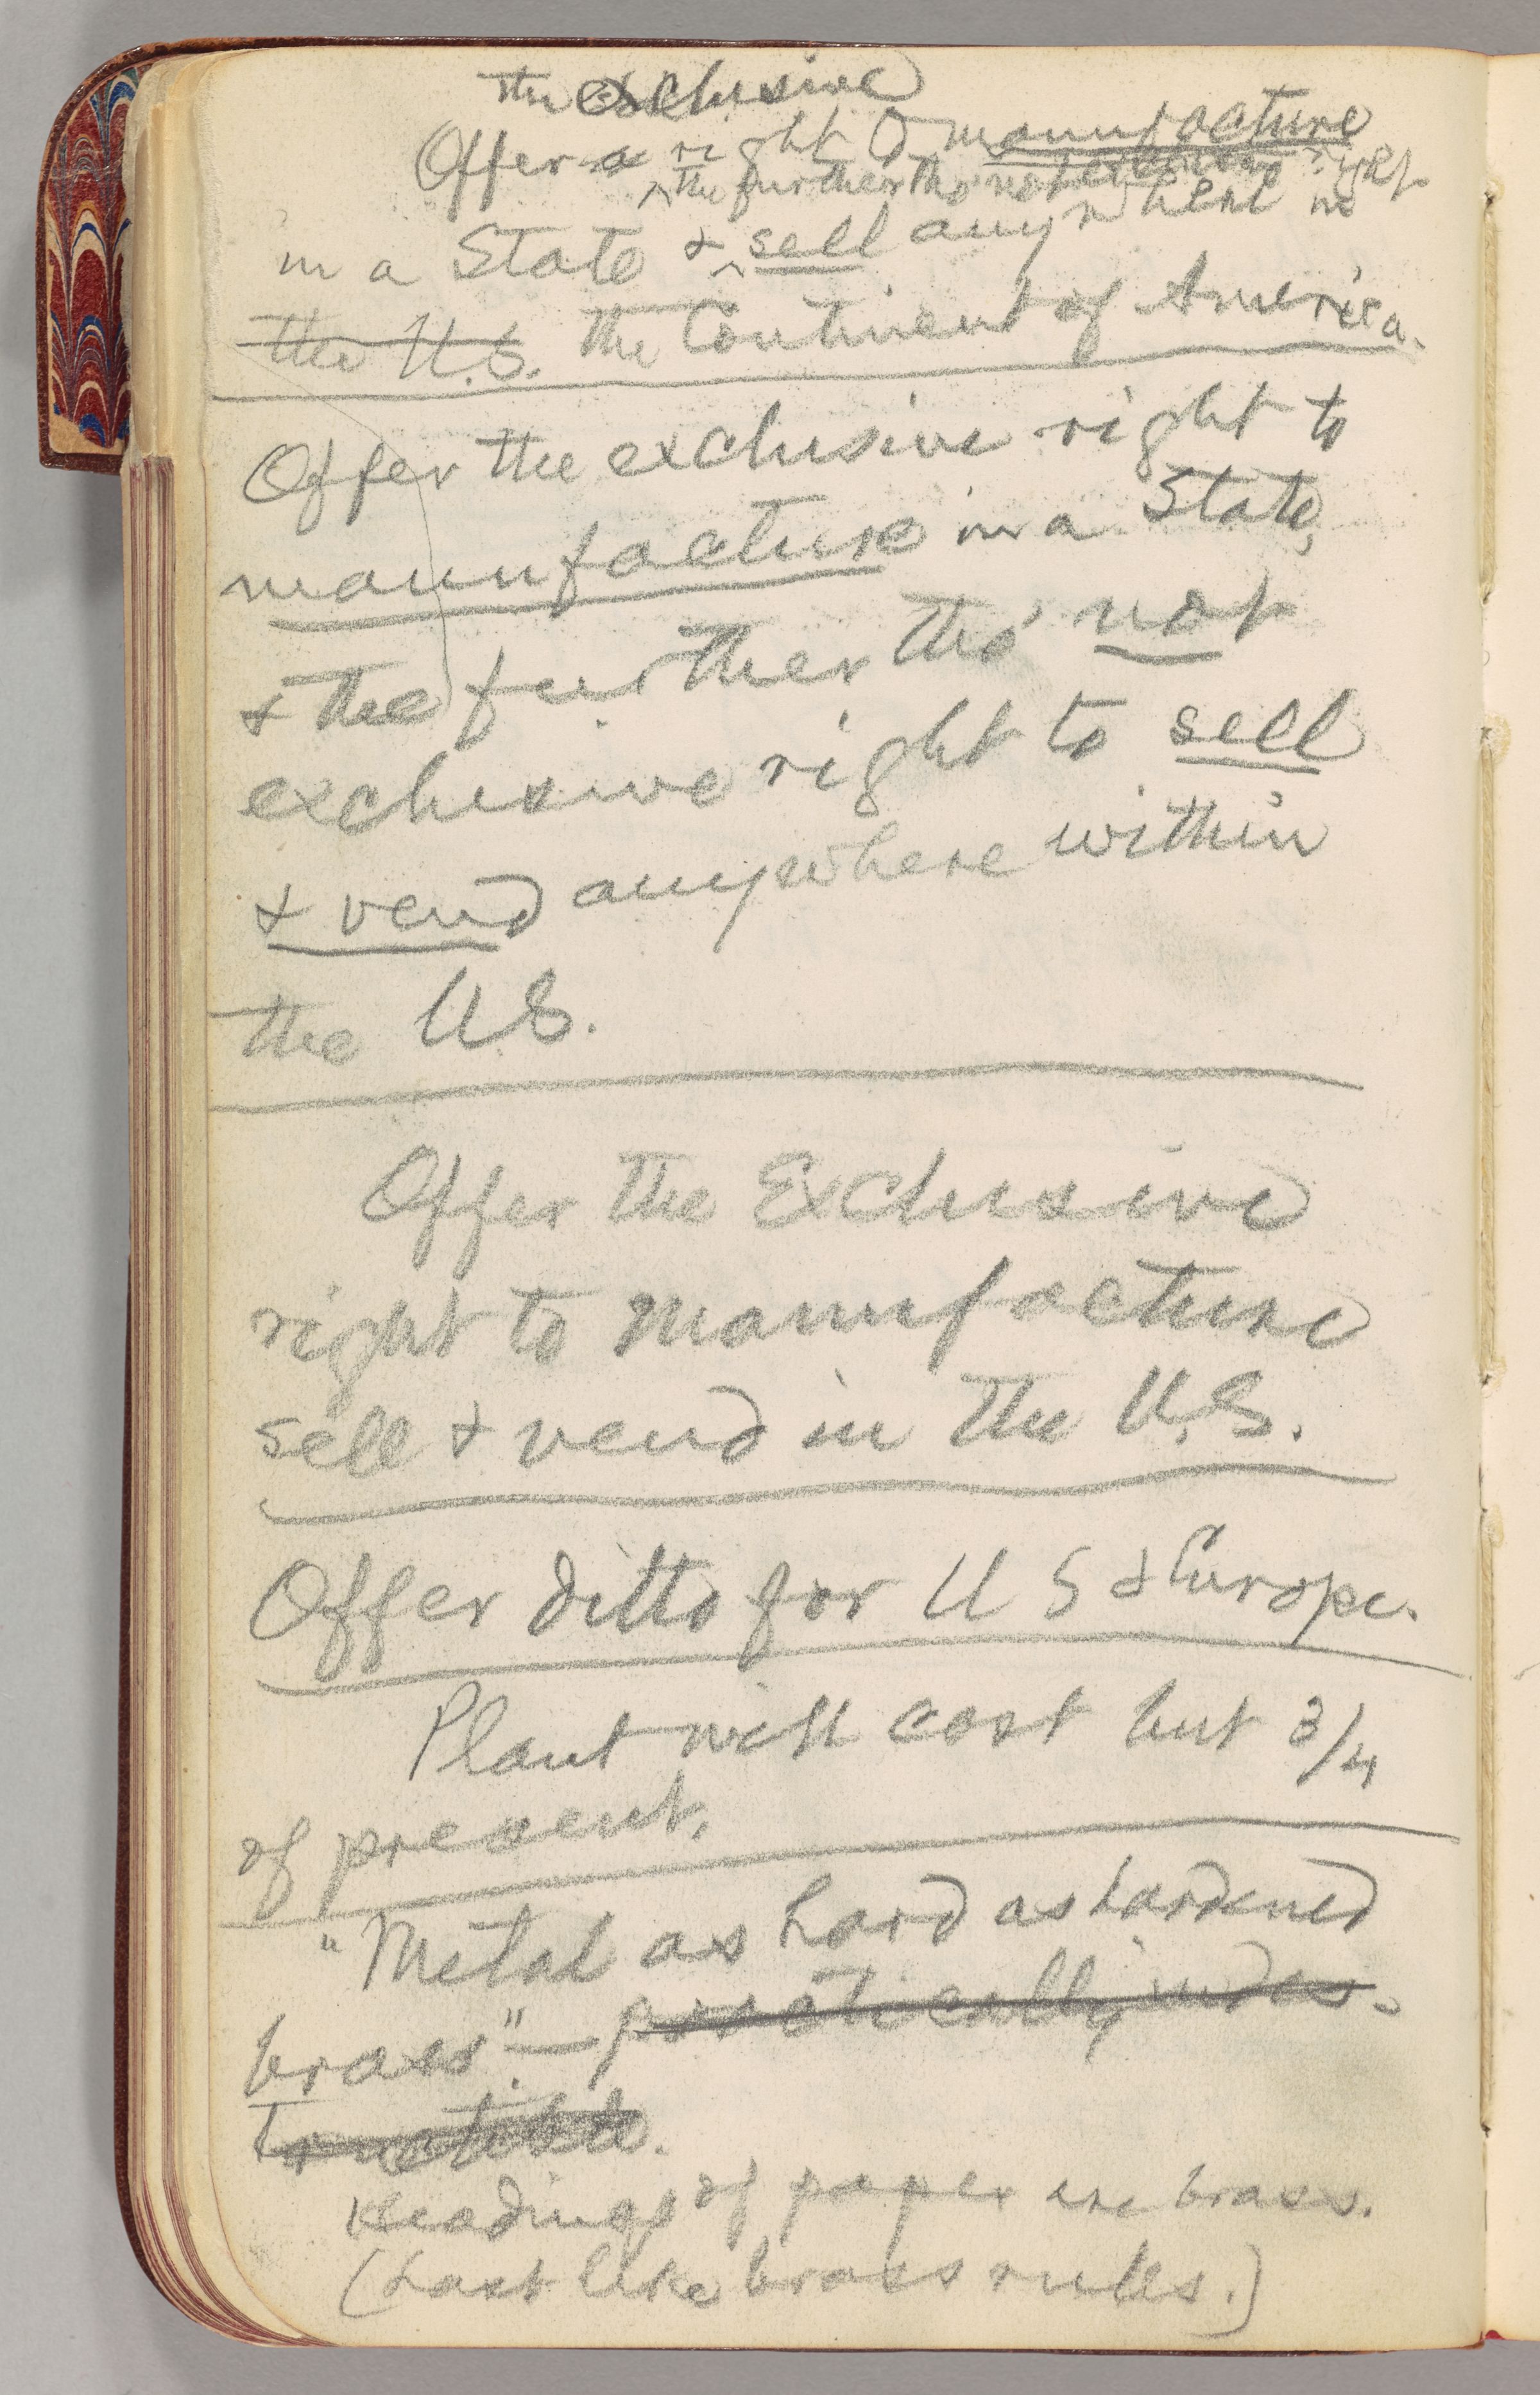 the exclusive
Offer a right to manufacture
the further tho' not exclusive right
in a State & sell anywhere in
the U.S. the Continent of America.
Offer the exclusive right to
manufacture in a State,
& the further tho' not
exclusive right to sell
& vend anywhere within
the U.S.
Offer the Exclusive
right to manufacture
sell & vend in the U.S.
Offer ditto for U S & Europe.
Plant will cost but 3/4
of present.
"Metal as hard as hardened
brass" — practically indes-
tructible.
Headings of paper are brass.
(Last like brass rules.)